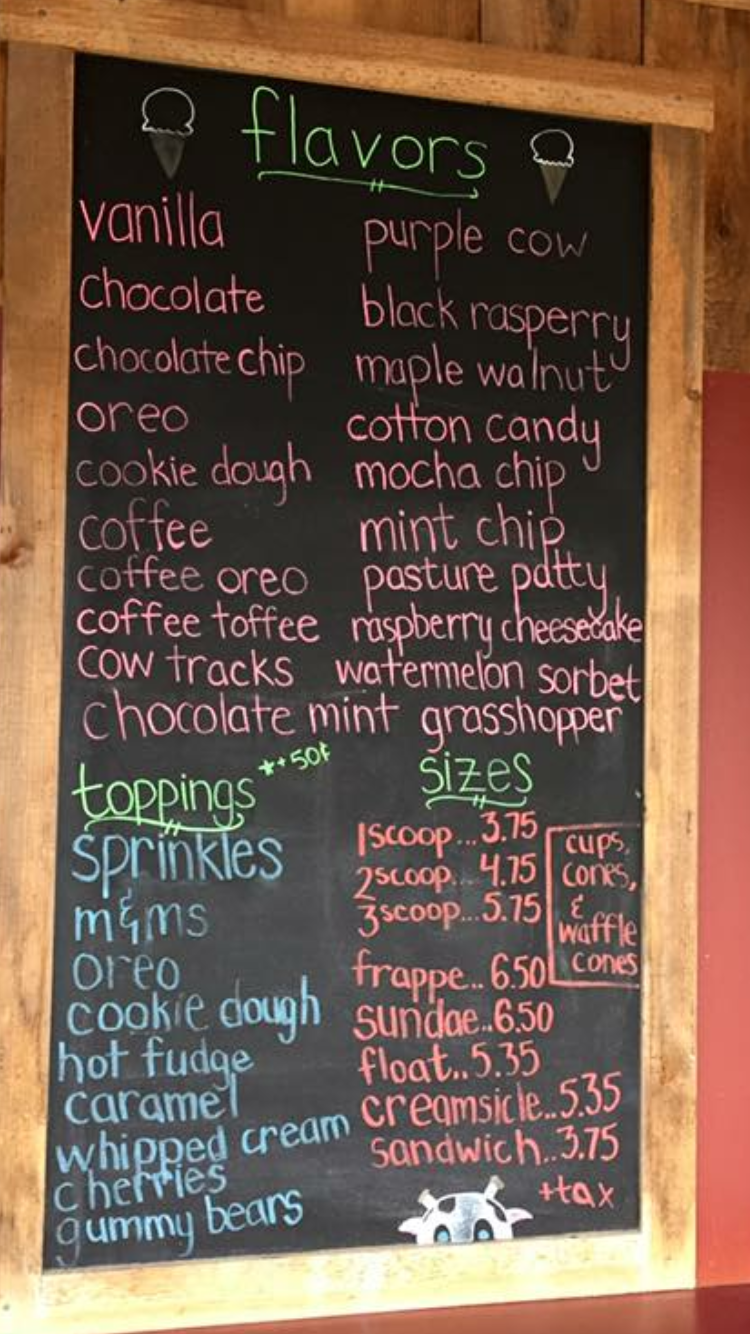 flavors
vanilla
chocolate
chocolate chip
oreo
cookie dough
coffee
coffee oreo
coffee toffee
cow tracks
chocolate mint grasshopper
purple cow
black rasperry
maple walnut
cotton candy
mocha chip
mint chip
pasture patty
raspberry cheesecake
watermelon sorbet
toppings *+50¢
sprinkles
m&ms
oreo
cookie dough
hot fudge
caramel
whipped cream
cherries
gummy bears
sizes
1scoop...3.75
2scoop...4.75
3scoop...5.75
cups,
cones,
&
waffle
cones
frappe..6.50
sundae..6.50
float..5.35
creamsicle..5.35
sandwich..3.75
+tax